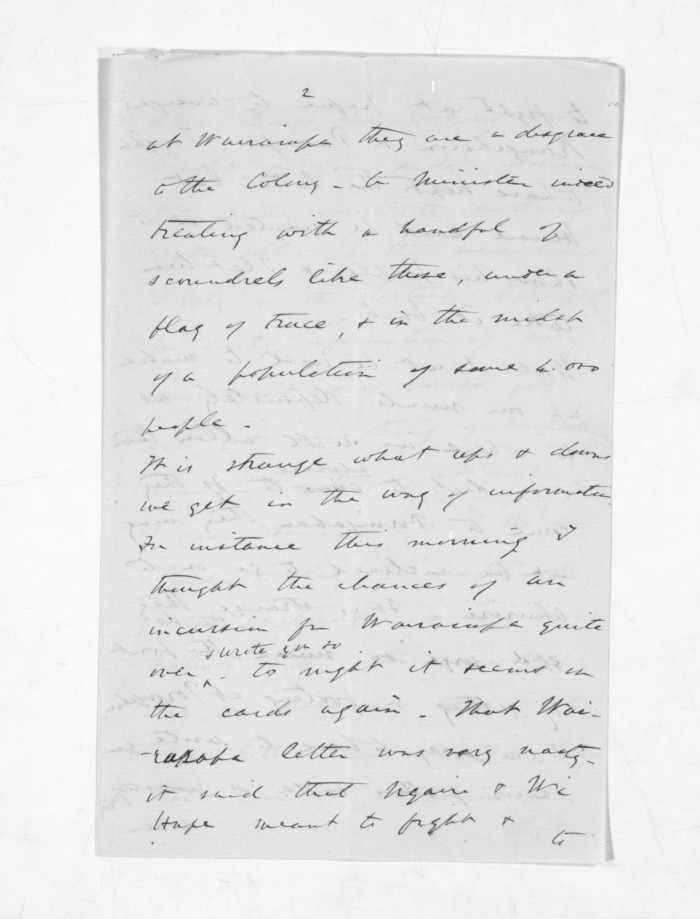 2
at Wairarapa they are a disgrace
to the Colony – to Minister indeed
treating with a handful of
scoundrels like these, under a
flag of truce, & in the midst
of a population of some 4.000
people.
It is strange what ups & downs
we get in the way of information
For instance this morning I
thought the chances of an
incursion for Wairarapa quite
& wrote you so
over – to night it seems in
the cards again – That Wai-
-rarapa letter was very nasty –
it said that Ngairo & Wi
Hape meant to fight &
to